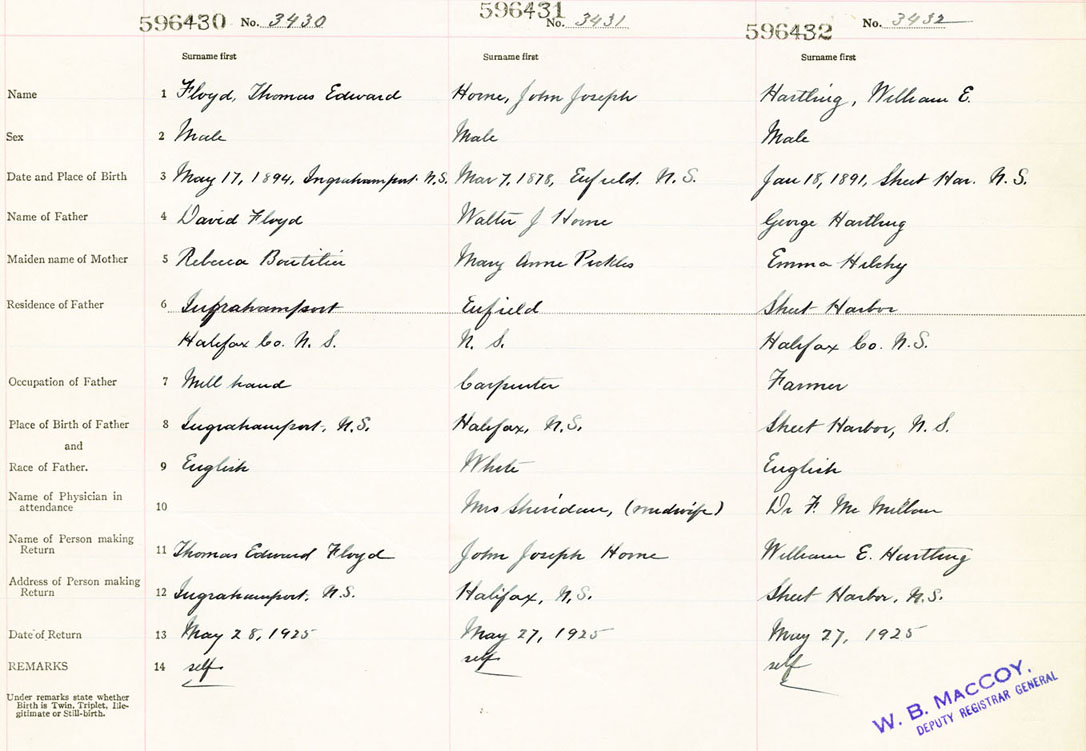 596430 No. 3430 596431 No. 3431 596432 No. 3432
Surname first Surname first Surname first
Name 1 Floyd, Thomas Edward Horne, John Joseph Hartling, William E.
Sex 2 Male Male Male
Date and Place of Birth 3 May 17, 1894, Ingrahamport. N.S. Mar 7, 1878, Enfield. N.S. Jan 18, 1891, Sheet Har. N.S.
Name of Father 4 David Floyd Walter J Horne George Hartling
Maiden name of Mother 5 Rebecca Boutilier Mary Anne Pickles Emma
Residence of Father 6 Ingrahamport Enfield Sheet Harbor
Halifax Co. N.S. N.S. Halifax Co. N.S.
Occupation of Father 7 Mill hand Carpenter Farmer
Place of Birth of Father 8 Ingrahamport, N.S. Halifax, N.S. Sheet Harbor, N.S.
and
Race of Father. 9 English White English
Name of Physician in attendance 10 Mrs Sheridan, (midwife) Dr F. McMillan
Name of Person making Return 11 Thomas Edward Floyd John Joseph Horne William E. Hartling
Address of Person making Return 12 Ingrahamport, N.S. Halifax, N.S. Sheet Harbor, N.S.
Date of Return 13 May 28, 1925 May 27, 1925 May 27, 1925
REMARKS 14 self self self
Under remarks state whether
Birth is Twin, Triplet, Ille-
gitimate or Still-birth.
W. B. MACCOY,
DEPUTY REGISTRAR GENERAL